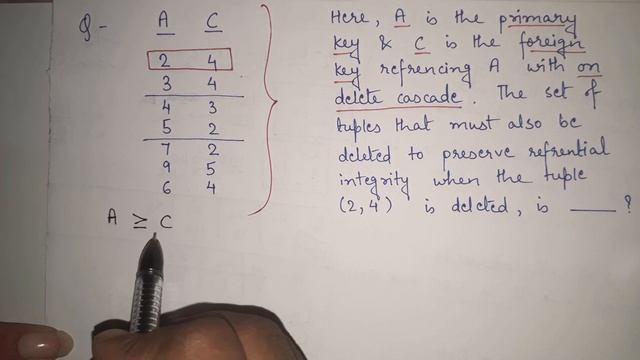 Q- A C
2 4
3 4
4 3
5 2
7 2
9 5
6 4
A ≥ C
Here, A is the primary
key & C is the foreign
key refrencing A with on
delete cascade. The set of
tuples that must also be
deleted to preserve refrential
integrity when the tuple
(2,4) is deleted, is ____?